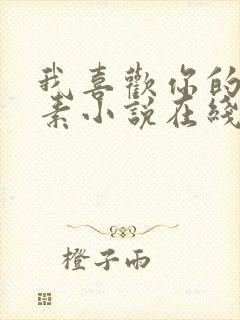 我喜歡你的
素小說在綫
橙子雨